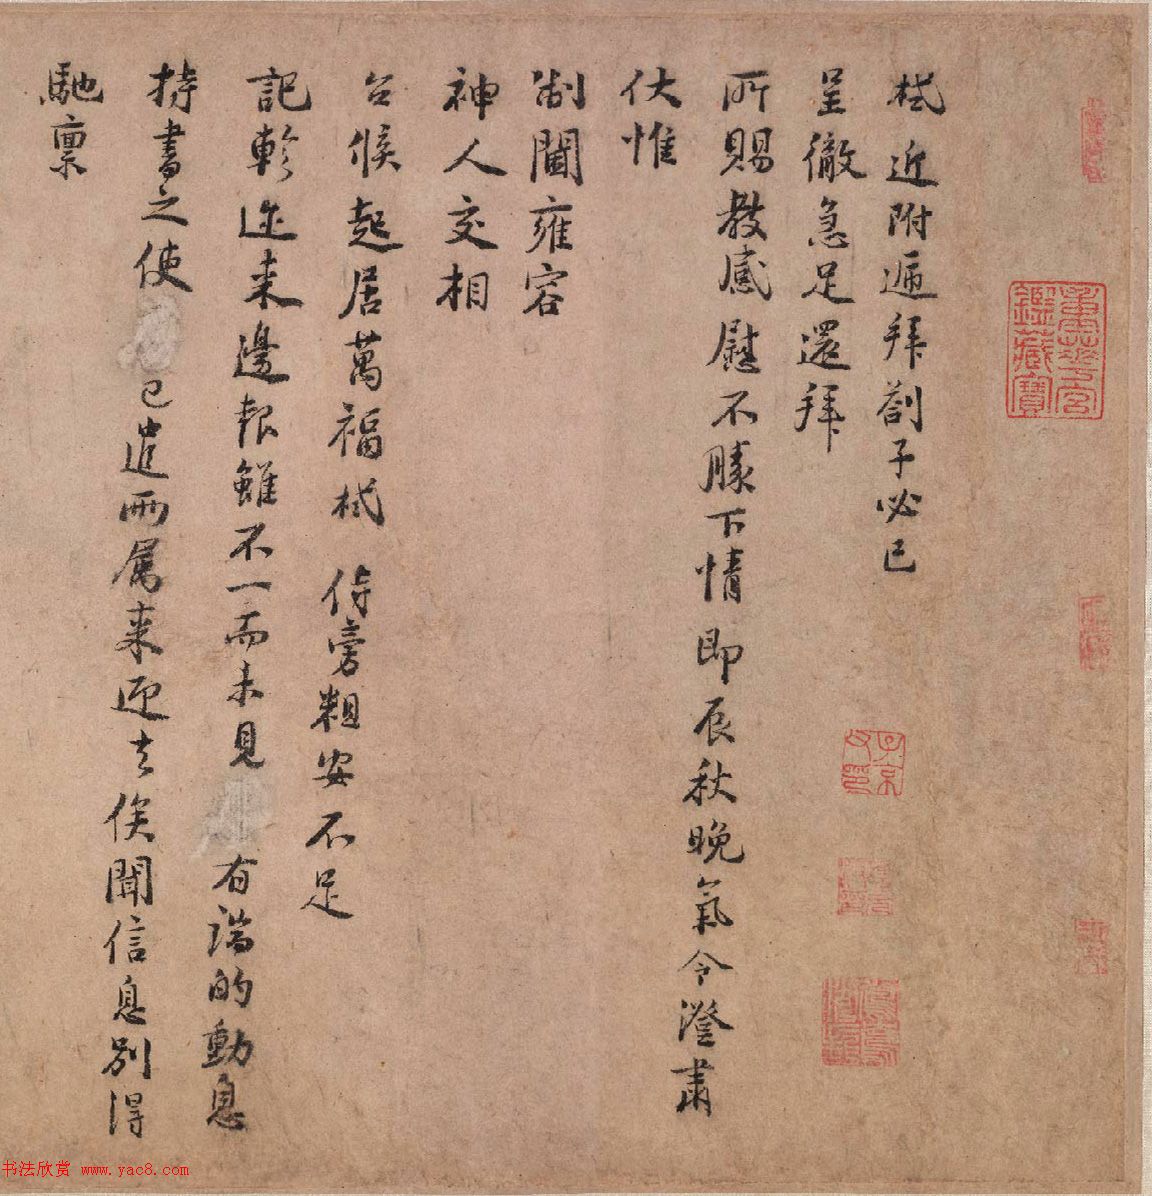 栻近附遞拜劄子必已
呈徹急足還拜
所賜教感慰不勝下情即辰秋晚氣令澄肅
伏惟
制閫雍容
神人交相
台候起居萬福栻侍旁粗安不足
記軫邇来邊報雖不一而未見有端的動息
持書之使已遣兩屬来迎之俟聞信息別得
馳稟
書法欣赏 www.yac8.com